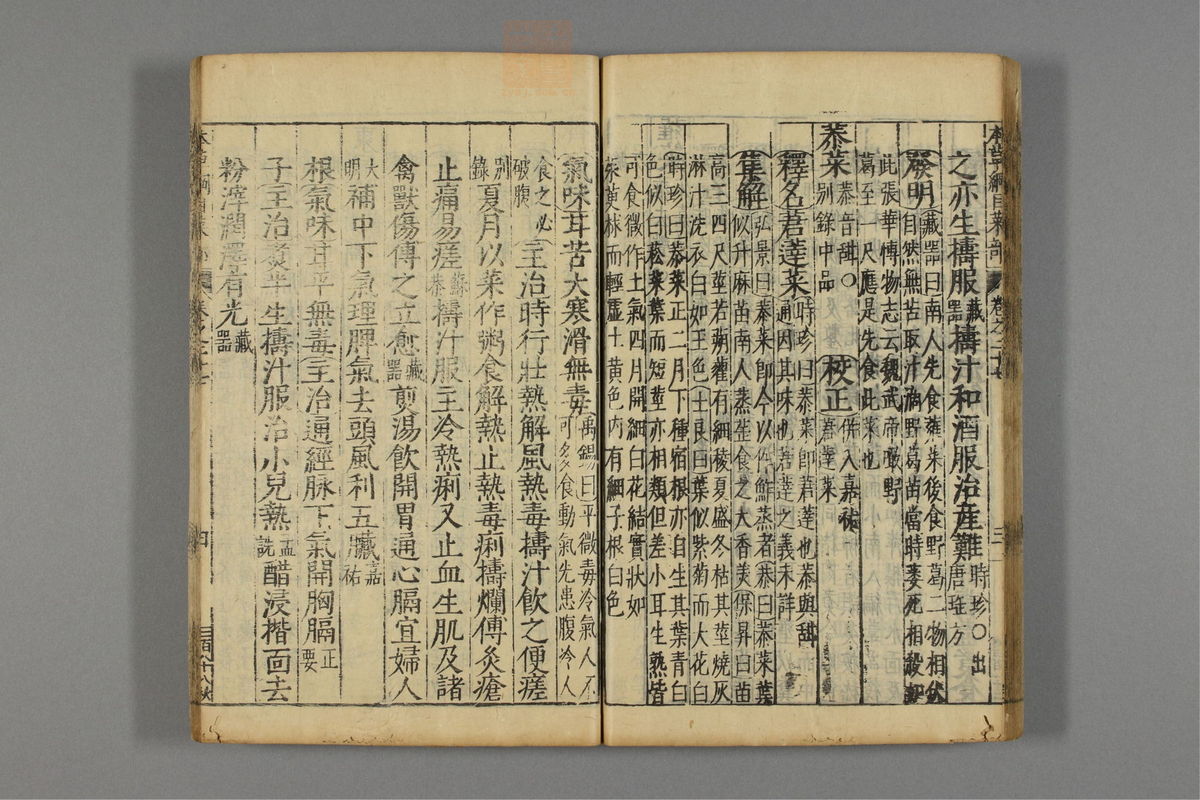 之亦生擣服藏器擣汁和酒服治產難時珍○出唐瑤方
發明藏器曰南人先食蕹菜後食野葛二物相伏
自然無苦取汁滴野葛苗當時萎死相殺如
此張華博物志云魏武帝啖野
葛至一尺應是先食此菜也
菾菜菾音甜○別錄中品校正併入嘉祐莙薘菜
釋名莙薘菜時珍曰菾菜即莙薘也菾與甜
通因其味也莙薘之義未詳
集解弘景曰菾菜即今以作鮓蒸者恭曰菾菜葉
似升麻苗南人蒸𤆬食之大香美保昇曰苗
高三四尺莖若蒴藋有細稜夏盛冬枯其莖燒灰
淋汁洗衣白如玉色士良曰葉似紫菊而大花白
時珍曰菾菜正二月下種宿根亦自生其葉青白
色似白菘菜葉而短莖亦相類但差小耳生熟皆
可食微作土氣四月開細白花結實狀如
茱萸梂而輕虛土黃色內有細子根白色
氣味甘苦大寒滑無毒禹錫曰平微毒冷氣人不可多食動氣先患腹冷人
食之必破腹主治時行壯熱解風熱毒擣汁飲之便瘥
別錄夏月以菜作粥食解熱止熱毒痢擣爛傅灸瘡
止痛易瘥蘇恭擣汁服主冷熱痢又止血生肌及諸
禽獸傷傅之立愈藏器煎湯飲開胃通心膈宜婦人
大明補中下氣理脾氣去頭風利五臟嘉祐
根氣味甘平無毒主治通經脉下氣開胸膈正要
子主治煑半生擣汁服治小兒熱孟詵醋浸揩面去
粉滓潤澤有光藏器
四